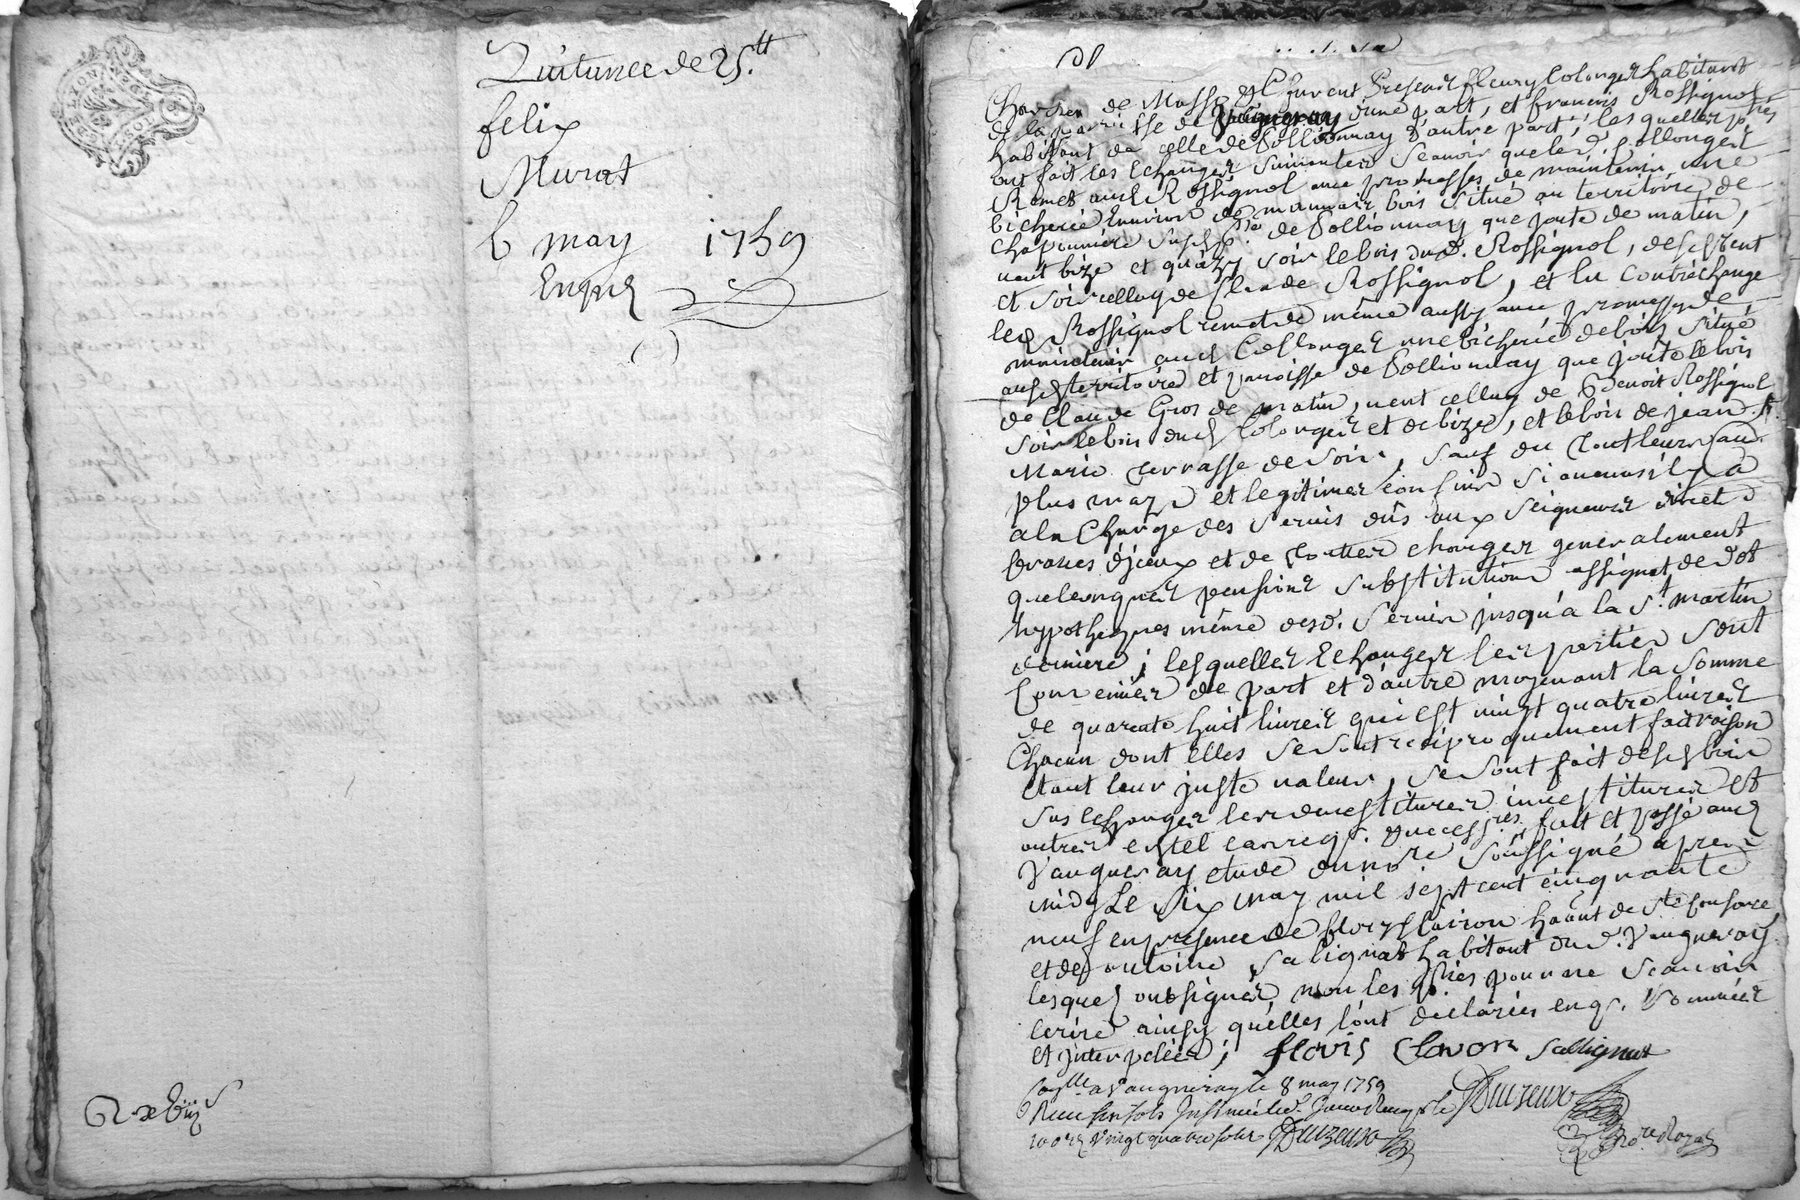 Quitance de 25.tt
felix
Murat
6 may 1759
Enqué
Furent Presents fleury Colonges habitant
de la parroisse de Vaugneray d'une part, et francois Rossignol
habitant de celle de Pollionnay d'autre part; lesquelles pties
ont fait les Echanges suivantes scavoir que led. Collonges
Remet aud Rossignol avec promesses de maintenir une
bicherée Environ de mauvais bois situé au territoire de
Chaponniere susd. psse de Pollionnay que joute de matin,
vent bize et soir le bois dud. Rossignol, de
et soir celluy de Claude Rossignol, et En Contréchange
led Rossignol remet de même aussy avec promesses de
maintenir aud Collonges une bicherée de bois situé
aud territoire et paroisse de Pollionnay que joute le bois
de Claude Gros de matin, vent celluy de Benoit Rossignol
soir le bois dud Colonges et de bize, et le bois de jean
Marie terrasse de soir, sauf du tout leurs
plus vrays et legitimes confins si aucuns il y a
a la Charge des servis dûs aux seigneurs directs
francs d'jceux et de toutes charges generalement
quelconques pensions substitutions assignat de dot
hypotheques même desd. servis jusqu'a la St martin
derniere; lesquelles Echanges les parties sont
Convenües de part et d'autre moyenant la somme
de quarente huit livres qui est vint quatre livres
Chacun dont elles se sont reciproquement fait raison
etant leur juste valeur, se sont fait desd bois
sus echangés les devestitures investitures et
autres en tel cas req. fait et passé aud
Vaugneray etude du nore soussigné apres
midy Le six may mil sept cent cinquante
neuf en presence de flory Clairon haant de Ste Consorce
et de antoine Salignat habitant dud. Vaugneray
lesquels ont signés, non les pties pour ne scavoir
ecrire ainsy qu'elles l'ont declarées enq. sommées
et jnterpelées; floris Clavon Sallignat
Conllé a Vaugneray le 8 may 1759
Reçu
vingt quatre sols Duzeux
Duzeux
nore Royal